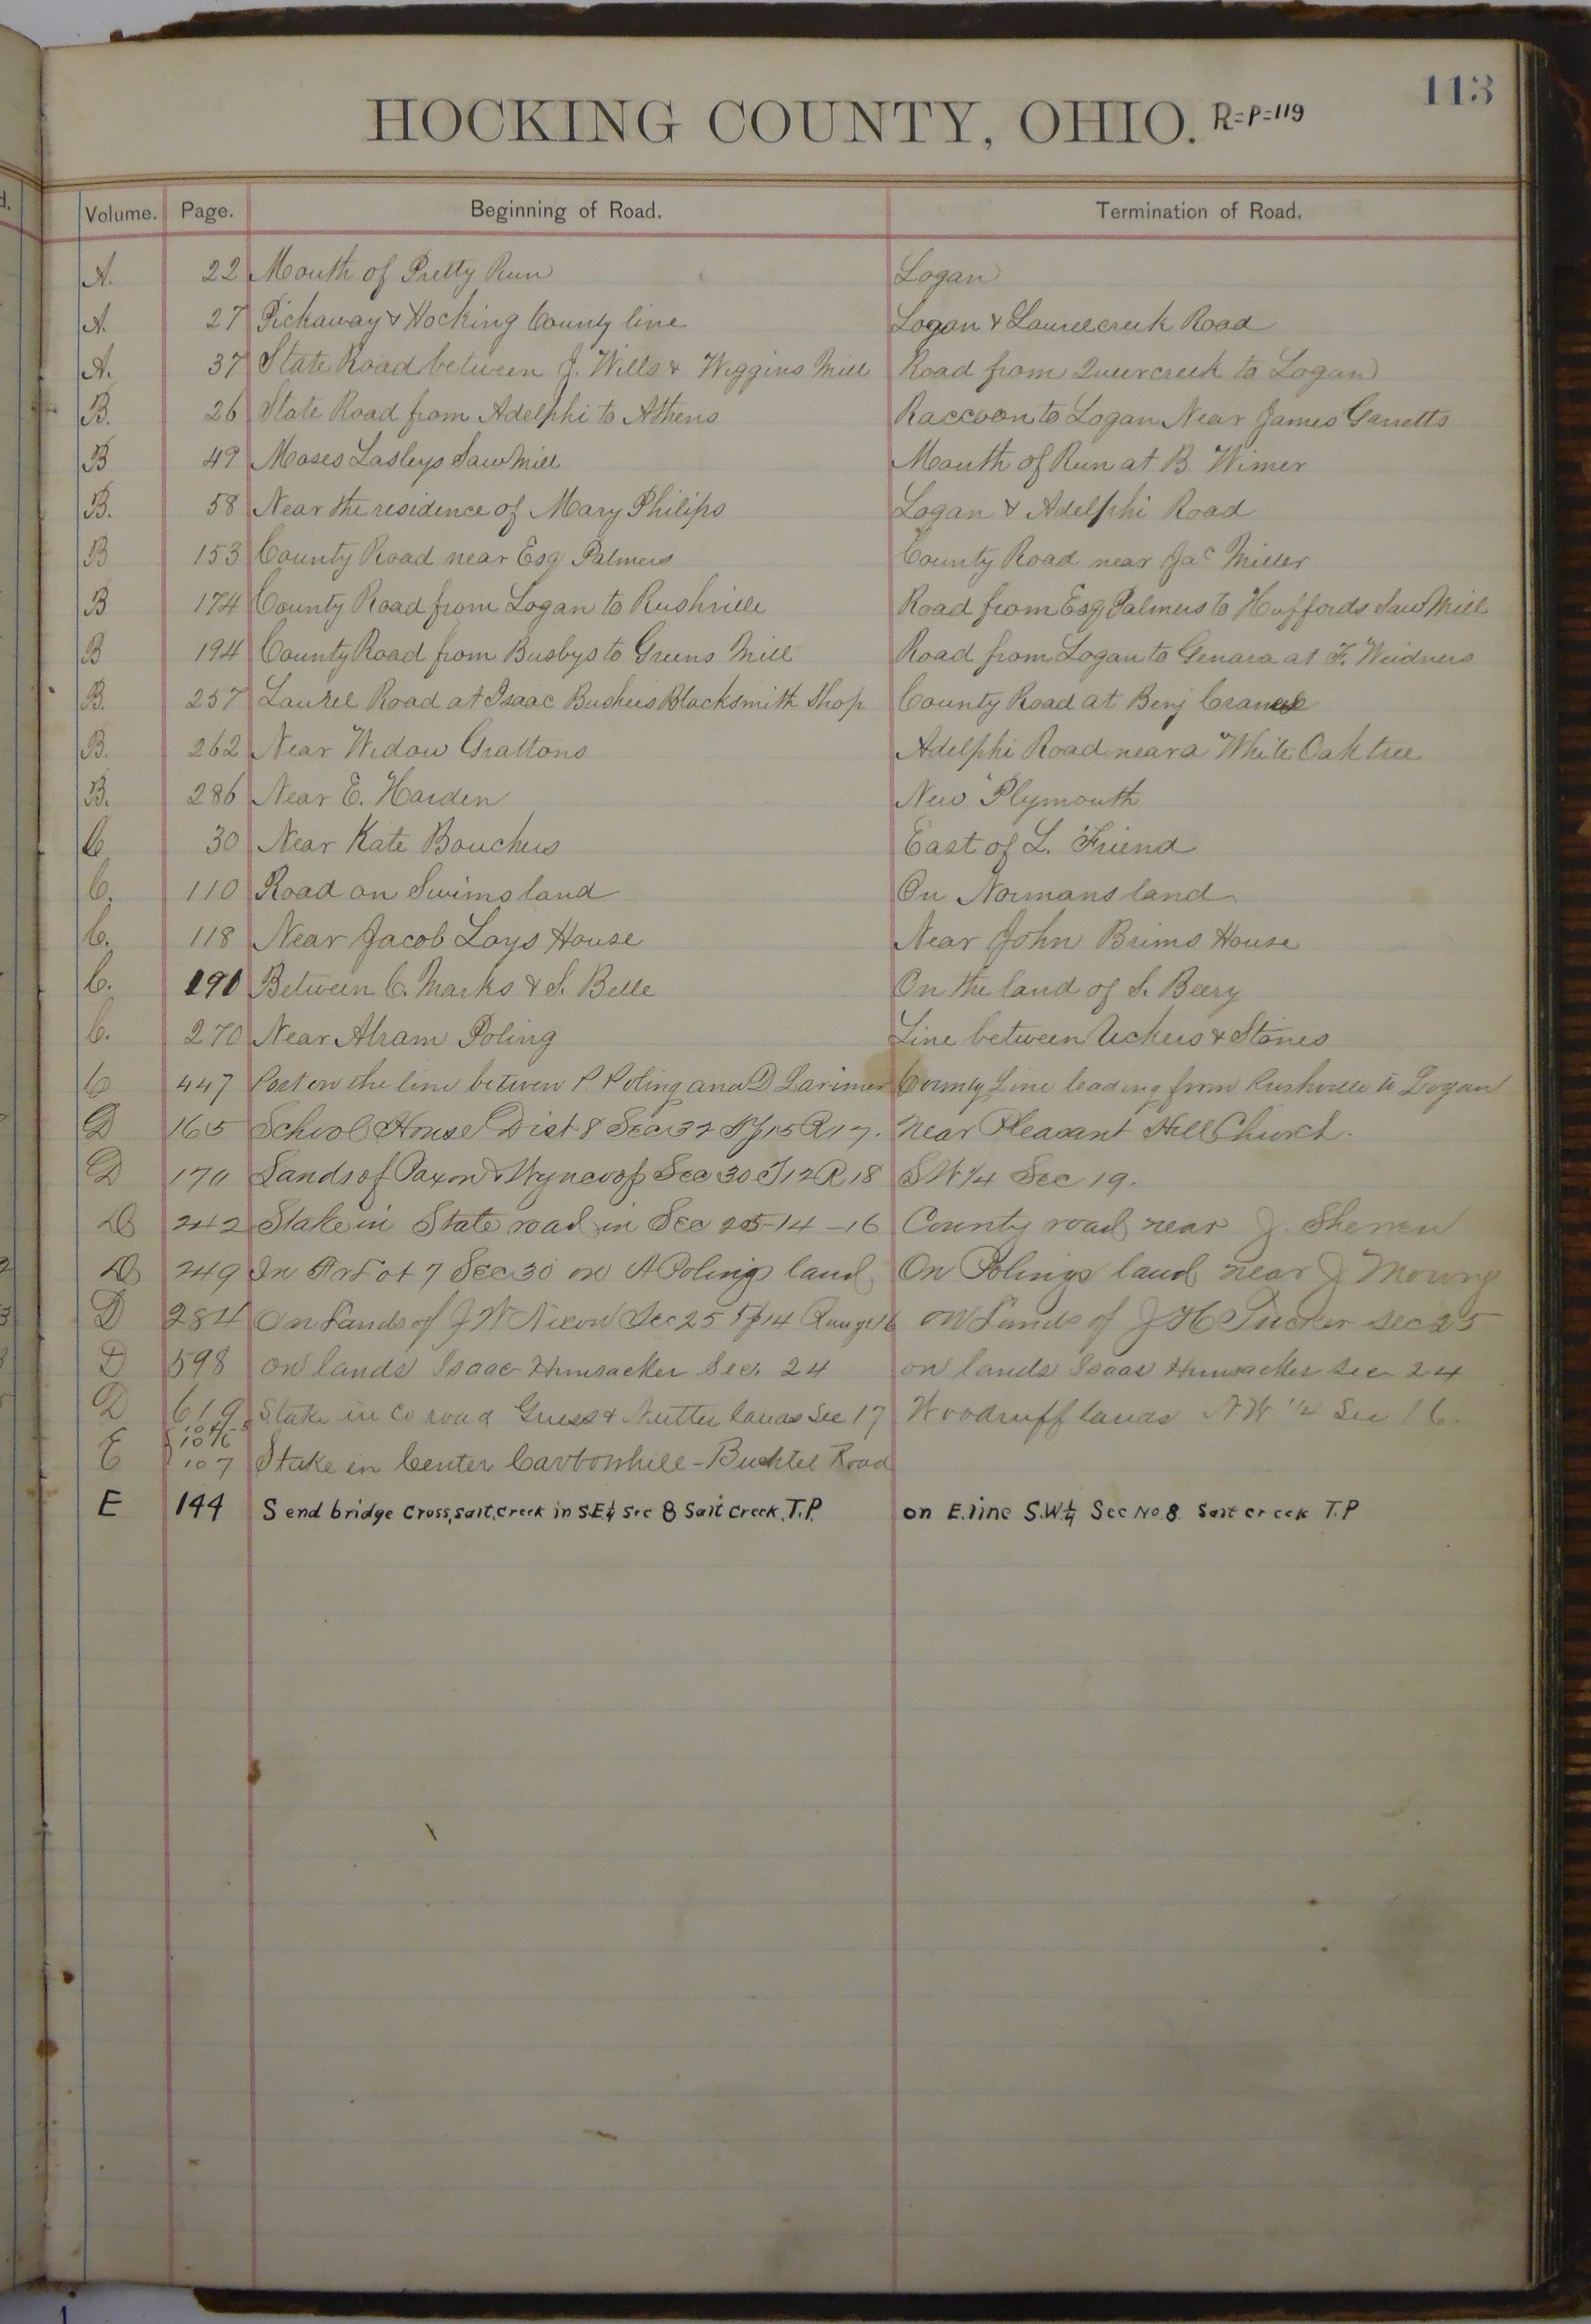 113
HOCKING COUNTY, OHIO. R=P=119
Volume. Page. Beginning of Road. Termination of Road.
A. 22 Mouth of Pretty Run Logan
A. 27 Pickaway & Hocking County line Logan & Laurelcreek Road
A. 37 State Road between J. Wills & Wiggins Mill Road from Queercreek to Logan
B. 26 State Road from Adelphi to Athens Raccoon to Logan Near James Garretts
B 49 Moses Lasleys Saw Mill Mouth of Run at B. Wimer
B. 58 Near the residence of Mary Philips Logan & Adelphi Road
B 153 County Road near Esq Palmers County Road near Jac Miller
B 174 County Road from Logan to Rushville Road from Esq Palmers to Huffords Saw Mill
B 194 County Road from Busbys to Greens Mill Road from Logan to Genara at F. Weidners
B. 257 Laurel Road at Isaac Bushees Blacksmith Shop County Road at Benj
B. 262 Near Widow Grattons Adelphi Road near a White Oak tree
B. 286 Near E. Harden New Plymouth
C 30 Near Kate Bouchers East of L. Friend
C. 110 Road on Swims land On Normans land
C. 118 Near Jacob Lays House Near John Brims House
C. 190 Between C. Marks & S. Belle On the land of S. Beery
C. 270 Near Abram Poling Line between Uckers & Stones
C 447 Post on the line between P Poling and D Larimer County Line leading from Rushville to Logan
D 165 School House Dist 8 Sec 32 Tp 15 R 17. Near Pleasant Hill Church.
D 170 Lands of Paxon & Wyncoop Sec 30 T 12 R 18 SW 1/4 Sec 19.
D 242 Stake in State road in Sec 25-14-16 County road near J.
D 249 In Lot 7 Sec 30 on A Polings land On Polings land near J Mowry
D 284 On Lands of J W Nixon Sec 25 Tp 14 Range 16 on Lands of J H Tucker Sec 25
D 598 on lands Isaac Hunsacker Sec. 24 on lands Isaac Hunsacker Sec 24
D 619 Stake in Co road & Nutter lands Sec 17 Woodruff lands NW 1/4 Sec 16.
E 107 Stake in Center Carbonhill-Buchtel Road
E 144 S end bridge Cross, Salt, Creek in S.E¼ Sec 8 Salt Creek, T.P. on E. line S.W.¼ Sec No 8 Salt Creek T.P